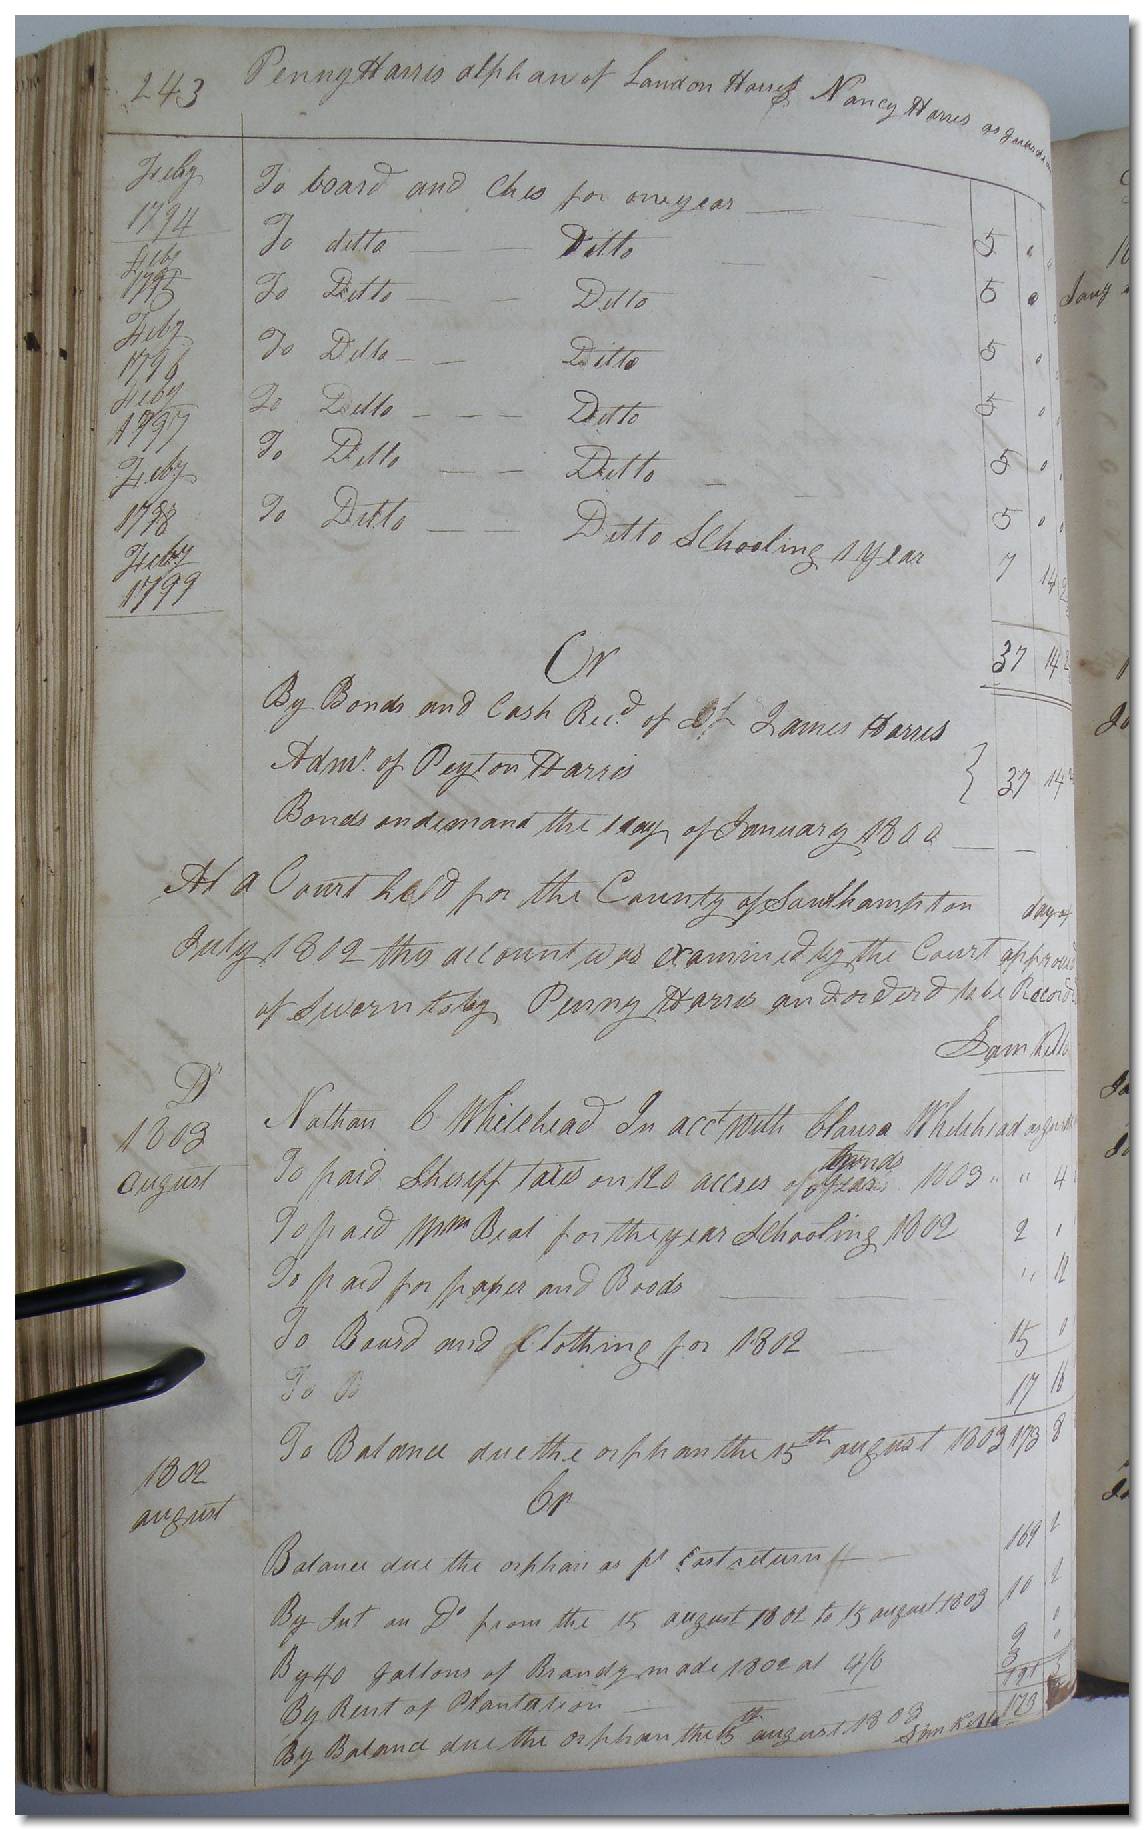 243 Penny Harris orphan of Landon Harris Nancy Harris as guardian
Feby
1794 To board and Clos for one year
Feby To ditto Ditto 5 "
1795
To Ditto Ditto 5 "
Feby
1796 To Ditto Ditto 5 "
Feby To Ditto Ditto 5 "
1797
Feby To Ditto Ditto 5 "
1798 To Ditto Ditto Schooling 1 year 5 "
Feby 7 14
1799
Cr 37 14
By Bonds and Cash Recd of James Harris
Admr. of Peyton Harris } 37 14
Bonds on demand the 1 day of January 1800
At a Court held for the County of Southampton day of
July 1802 this account was examined by the Court approved
of Swern to by Penny Harris and ordered to be Record
Sam Kello
Dr
1803 Nathan C Whitehead In acct with Clausa Whitehead
august To paid Sheriff taxes on 120 accres of 1803 " " 4
To paid Wm Beal for the year Schooling 1802 2 1
To paid for paper and Books " 12
To Board and Clothing for 1802 15 0
To B 17
To Balance due the orphan the 15th august 1803 173 8
1802 Cr
august
Balance due the orphan as pr Last return 169 2
By Int on Do from the 15 august 1802 to 15 august 1803 10 2
By 40 gallons of Brandy made 1802 at 4/6 9 0
By Rent of Plantation 3 0
By Balance due the orphan the 15th august 1803 173
Sam Kello